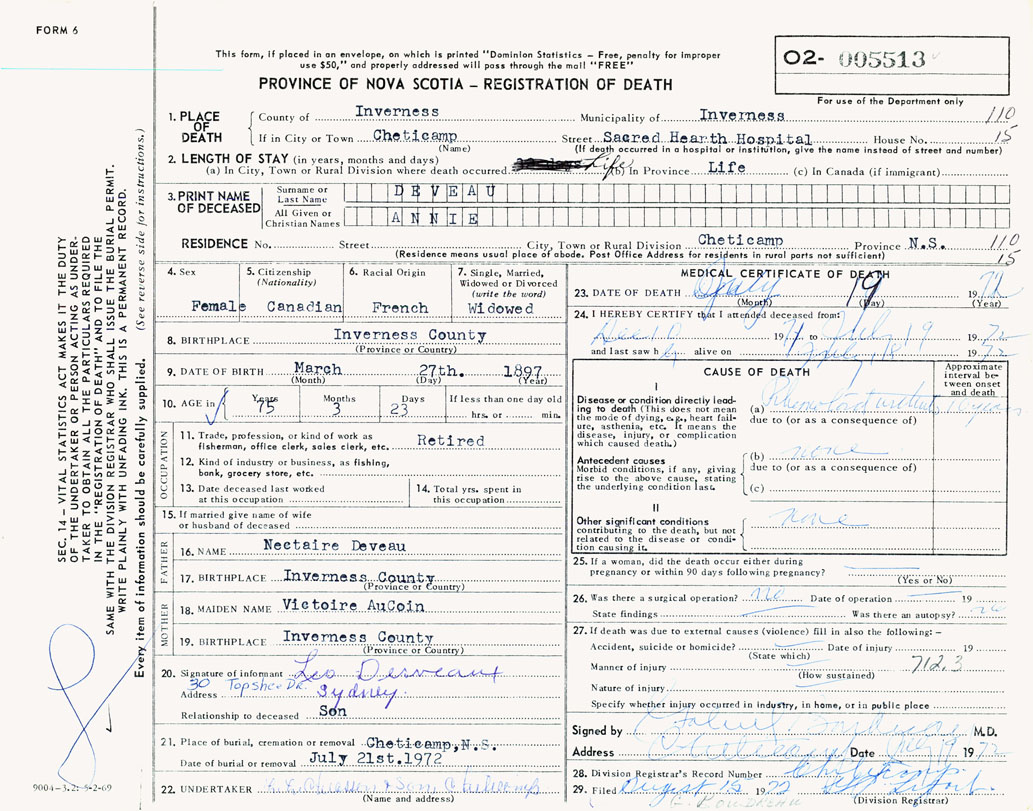 FORM 6
This form, if placed in an envelope, on which is printed "Dominion Statistics – Free, penalty for improper
use $50," and properly addressed will pass through the mail "FREE"
O2- 005513
For use of the Department only
PROVINCE OF NOVA SCOTIA – REGISTRATION OF DEATH
1. PLACE OF DEATH County of Inverness Municipality of Inverness 110
If in City or Town Cheticamp Street Sacred Hearth Hospital House No. 15
(Name) (If death occurred in a hospital or institution, give the name instead of street and number)
2. LENGTH OF STAY (in years, months and days)
(a) In City, Town or Rural Division where death occurred Life (b) In Province Life (c) In Canada (if immigrant)
3. PRINT NAME OF DECEASED Surname or Last Name DEVEAU
All Given or Christian Names ANNIE
RESIDENCE No. Street City, Town or Rural Division Cheticamp Province N.S. 110
(Residence means usual place of abode. Post Office Address for residents in rural parts not sufficient) 15
4. Sex Female
5. Citizenship (Nationality) Canadian
6. Racial Origin French
7. Single, Married, Widowed or Divorced (write the word) Widowed
8. BIRTHPLACE Inverness County
(Province or Country)
9. DATE OF BIRTH March 27th. 1897
(Month) (Day) (Year)
10. AGE in Years 75 Months 3 Days 23 If less than one day old
hrs. or min.
OCCUPATION
11. Trade, profession, or kind of work as
fisherman, office clerk, sales clerk, etc. Retired
12. Kind of industry or business, as fishing,
bank, grocery store, etc.
13. Date deceased last worked
at this occupation
14. Total yrs. spent in
this occupation
15. If married give name of wife
or husband of deceased
FATHER
16. NAME Nectaire Deveau
17. BIRTHPLACE Inverness County
(Province or Country)
MOTHER
18. MAIDEN NAME Victoire AuCoin
19. BIRTHPLACE Inverness County
(Province or Country)
20. Signature of informant Leo Desveaux
Address 30 Topshee Dr. Sydney.
Relationship to deceased Son
21. Place of burial, cremation or removal Cheticamp, N.S.
Date of burial or removal July 21st.1972
22. UNDERTAKER & Son Cheticamp
(Name and address)
MEDICAL CERTIFICATE OF DEATH
23. DATE OF DEATH July 19 1972
(Month) (Day) (Year)
24. I HEREBY CERTIFY that I attended deceased from:
Dec 10 1971 to July 19 1972
and last saw her alive on July 18 1972
CAUSE OF DEATH
Approximate interval between onset and death
I
Disease or condition directly leading to death (This does not mean the mode of dying, e.g., heart failure, asthenia, etc. It means the disease, injury, or complication which caused death.)
(a) 10 years
due to (or as a consequence of)
Antecedent causes
Morbid conditions, if any, giving rise to the above cause, stating the underlying condition last.
(b) none
due to (or as a consequence of)
(c)
II
Other significant conditions
contributing to the death, but not related to the disease or condition causing it.
none
25. If a woman, did the death occur either during
pregnancy or within 90 days following pregnancy?
(Yes or No)
26. Was there a surgical operation? no Date of operation 19
State findings Was there an autopsy? no
27. If death was due to external causes (violence) fill in also the following: –
Accident, suicide or homicide? Date of injury 19
(State which)
Manner of injury 712.3
(How sustained)
Nature of injury
Specify whether injury occurred in industry, in home, or in public place
Signed by M.D.
Address Cheticamp Date July 19 1972
28. Division Registrar's Record Number
29. Filed August 15 1972
(Division Registrar)
SEC. 14 – VITAL STATISTICS ACT MAKES IT THE DUTY
OF THE UNDERTAKER OR PERSON ACTING AS UNDERTAKER TO OBTAIN ALL THE PARTICULARS REQUIRED
IN THE "REGISTRATION OF DEATH" AND TO FILE THE
SAME WITH THE DIVISION REGISTRAR WHO SHALL ISSUE THE BURIAL PERMIT.
WRITE PLAINLY WITH UNFADING INK. THIS IS A PERMANENT RECORD.
Every item of information should be carefully supplied. (See reverse side for instructions.)
9004-3.2: 5-2-69